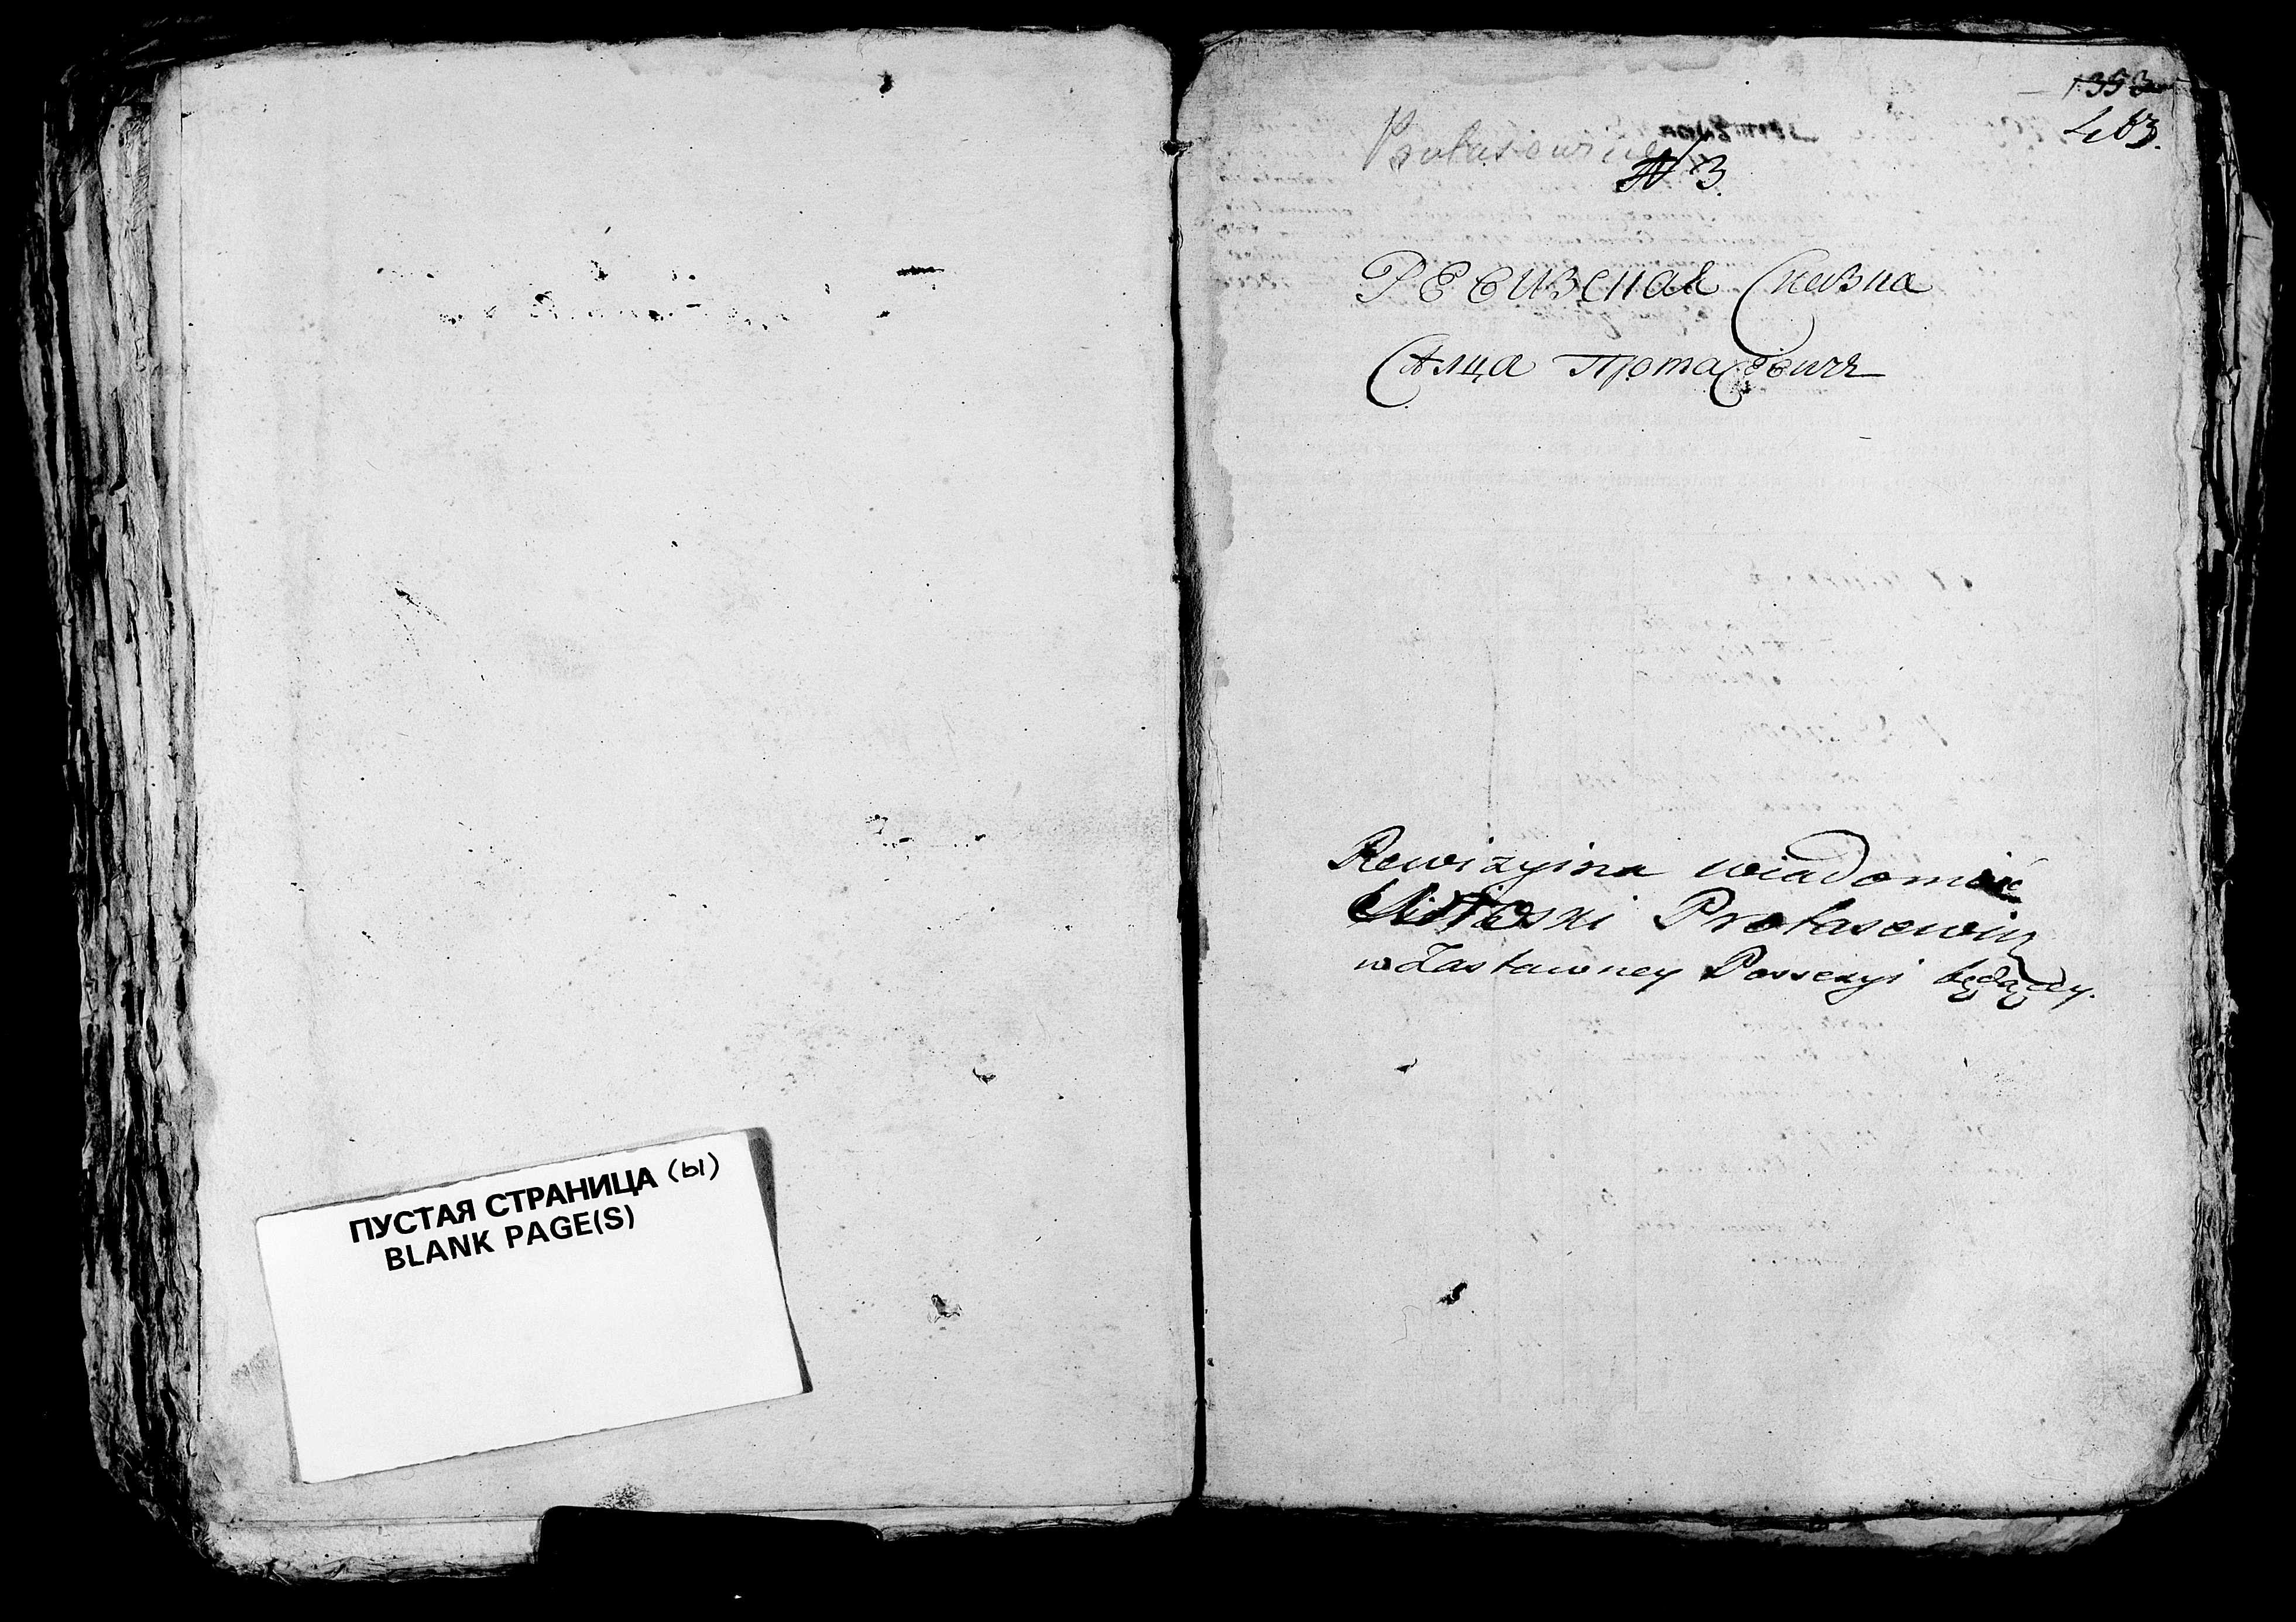 ПУСТАЯ СТРАНИЦА (ы)
BLANK PAGE(S)
1353
463.
Protasiewicze
№ 3.
Ревизская Скезка
Селца Протасевичъ
Rewizyina wiadomość
Protasewicz
w Zastawney Possezyi będącey.